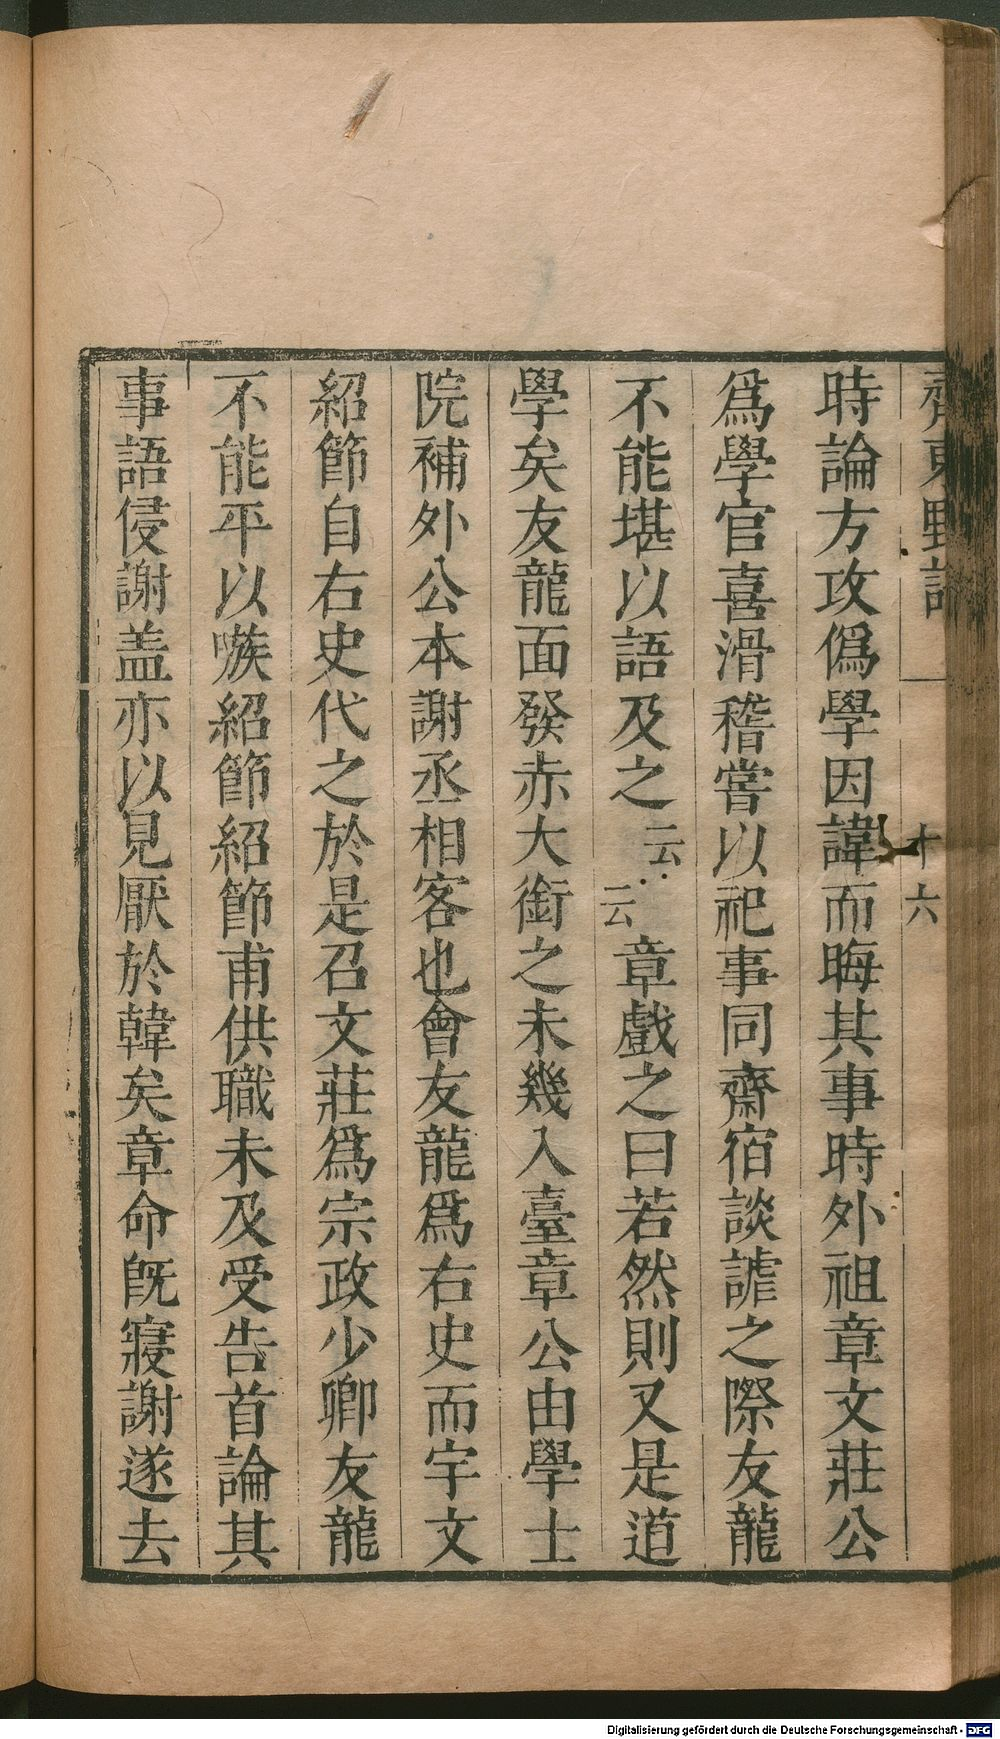 齊東野語
十六
時論方攻僞學因諱而晦其事時外祖章文莊公
爲學官喜滑稽嘗以祀事同齋宿談謔之際友龍
不能堪以語及之云云章戲之曰若然則又是道
學矣友龍面發赤大銜之未幾入臺章公由學士
院補外公本謝丞相客也會友龍爲右史而宇文
紹節自右史代之於是召文莊爲宗政少卿友龍
不能平以嗾紹節紹節甫供職未及受告首論其
事語侵謝盖亦以見厭於韓矣章命旣寢謝遂去
Digitalisierung gefördert durch die Deutsche Forschungsgemeinschaft - DFG